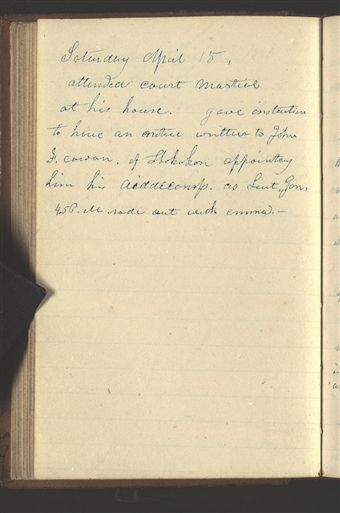 Saturday April 15,
attended court martiel
at his house. gave instruction
to have an notice written to John
F. cowan. of Shokokon appointing
him his aiddecamp. as Leut. Gen,
P. M. rode out with emma.—